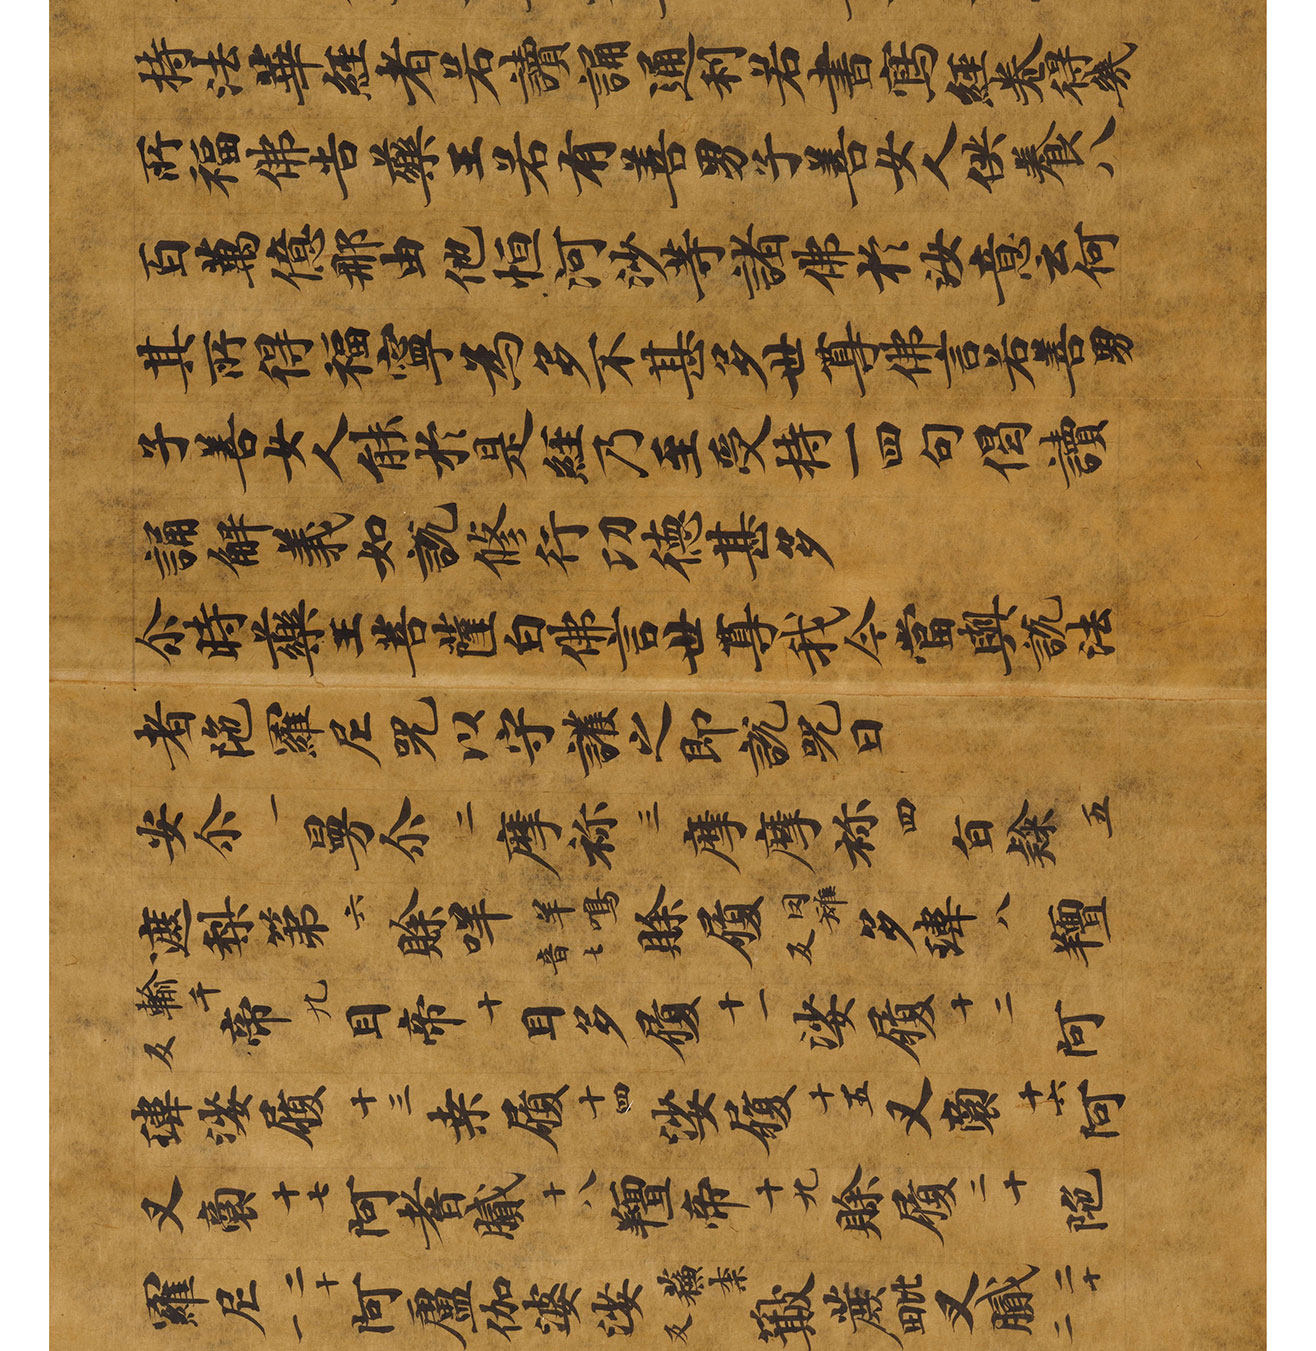 持法華經者若讀誦通利若書寫經卷得幾
所福佛告藥王若有善男子善女人供養八
百萬億那由他恒河沙等諸佛於汝意云何
其所得福寧為多不甚多世尊佛言若善男
子善女人能於是經乃至受持一四句偈讀
誦解義如說修行功德甚多
尒時藥王菩薩白佛言世尊我今當與說法
者陁羅尼呪以守護之即說呪曰
安尒一曼尒二摩祢三摩摩祢四旨隸五
遮梨第六賖咩羊鳴音七賖履罔雉反多瑋八羶
輸千反帝九目帝十目多履十一娑履十二阿
瑋娑履十三桒履十四娑履十五叉裔十六阿
叉裔十七阿耆膩十八羶帝十九賖履二十陁
羅尼二十一阿盧伽婆娑蘇柰反簸蔗毗叉膩二十二